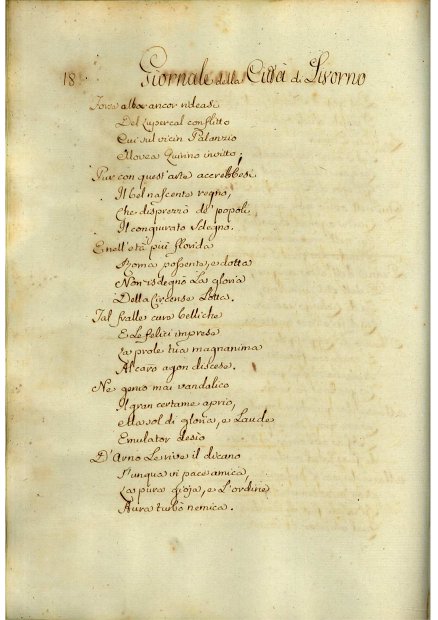 18. Giornale della Città di Livorno
alba ancor rideasi
Del Lupercal conflitto
Cui sul vicin Palanzio
Movea Quirino invitto;
Pur con quest'arte acerebbesi
Il bel nascente regno,
Che disprezzò de' popoli
Il congiurato sdegno.
E nell'età più florida
Roma possente, e dotta
Non isdegnò la gloria
Della Circense Lotta.
Tal fralle cure belliche
E le felici imprese
La prole tua magnanima
Al caro agon discese.
Ne genio mai vandalico
Il gran certame aprio,
Ma sol di gloria, e Laude
Emulator desio
D'Arno Le rive il dicano
Punqua in pace amica
La pura gioja, e L'ordine
Aura turbò nemica.